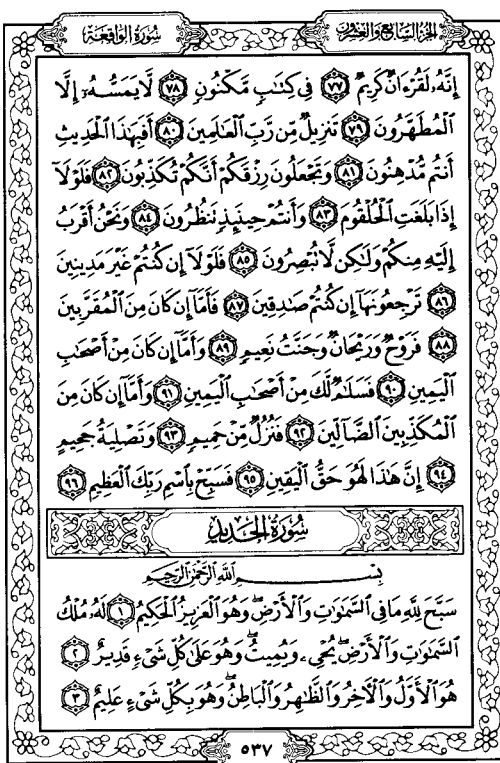 سُورَةُ الوَاقِعَة
الجُزْءُ السَّابِعُ وَالعِشْرُونَ
إِنَّهُۥ لَقُرْءَانٌ كَرِيمٌ ٧٧ فِى كِتَٰبٍ مَّكْنُونٍ ٧٨ لَّا يَمَسُّهُۥٓ إِلَّا
ٱلْمُطَهَّرُونَ ٧٩ تَنزِيلٌ مِّن رَّبِّ ٱلْعَٰلَمِينَ ٨٠ أَفَبِهَٰذَا ٱلْحَدِيثِ
أَنتُم مُّدْهِنُونَ ٨١ وَتَجْعَلُونَ رِزْقَكُمْ أَنَّكُمْ تُكَذِّبُونَ ٨٢ فَلَوْلَآ
إِذَا بَلَغَتِ ٱلْحُلْقُومَ ٨٣ وَأَنتُمْ حِينَئِذٍ تَنظُرُونَ ٨٤ وَنَحْنُ أَقْرَبُ
إِلَيْهِ مِنكُمْ وَلَٰكِن لَّا تُبْصِرُونَ ٨٥ فَلَوْلَآ إِن كُنتُمْ غَيْرَ مَدِينِينَ
٨٦ تَرْجِعُونَهَآ إِن كُنتُمْ صَٰدِقِينَ ٨٧ فَأَمَّآ إِن كَانَ مِنَ ٱلْمُقَرَّبِينَ
٨٨ فَرَوْحٌ وَرَيْحَانٌ وَجَنَّتُ نَعِيمٍ ٨٩ وَأَمَّآ إِن كَانَ مِنْ أَصْحَٰبِ
ٱلْيَمِينِ ٩٠ فَسَلَٰمٌ لَّكَ مِنْ أَصْحَٰبِ ٱلْيَمِينِ ٩١ وَأَمَّآ إِن كَانَ مِنَ
ٱلْمُكَذِّبِينَ ٱلضَّآلِّينَ ٩٢ فَنُزُلٌ مِّنْ حَمِيمٍ ٩٣ وَتَصْلِيَةُ جَحِيمٍ
٩٤ إِنَّ هَٰذَا لَهُوَ حَقُّ ٱلْيَقِينِ ٩٥ فَسَبِّحْ بِٱسْمِ رَبِّكَ ٱلْعَظِيمِ ٩٦
سُورَةُ الحَدِيدِ
بِسْمِ ٱللَّهِ ٱلرَّحْمَٰنِ ٱلرَّحِيمِ
سَبَّحَ لِلَّهِ مَا فِى ٱلسَّمَٰوَٰتِ وَٱلْأَرْضِ وَهُوَ ٱلْعَزِيزُ ٱلْحَكِيمُ ١ لَهُۥ مُلْكُ
ٱلسَّمَٰوَٰتِ وَٱلْأَرْضِ يُحْىِۦ وَيُمِيتُ وَهُوَ عَلَىٰ كُلِّ شَىْءٍ قَدِيرٌ ٢
هُوَ ٱلْأَوَّلُ وَٱلْءَاخِرُ وَٱلظَّٰهِرُ وَٱلْبَاطِنُ وَهُوَ بِكُلِّ شَىْءٍ عَلِيمٌ ٣
٥٣٧